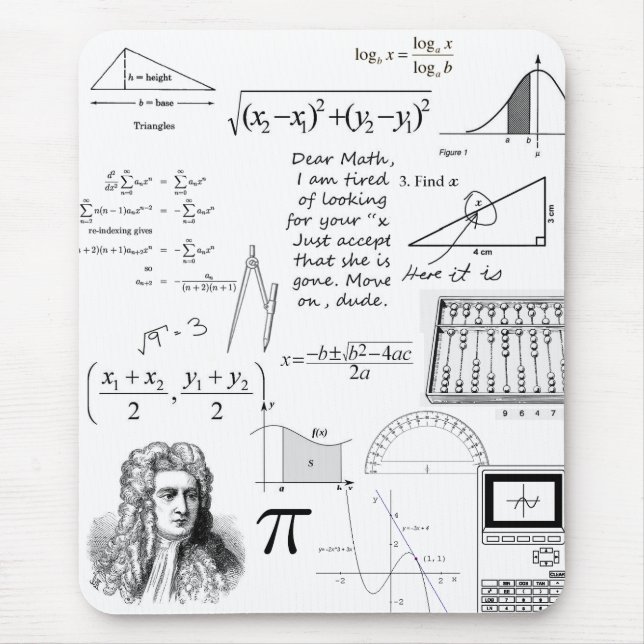 h = height
b = base
Triangles
log_b x = log_a x / log_a b
√(x₂−x₁)²+(y₂−y₁)²
Figure 1
a b μ
d²/dx² ∑ₙ₌₀^∞ aₙxⁿ = ∑ₙ₌₀^∞ aₙxⁿ
∑ₙ₌₂^∞ n(n−1)aₙxⁿ⁻² = −∑ₙ₌₀^∞ aₙxⁿ
re-indexing gives
+2)(n+1)aₙ₊₂xⁿ = −∑ₙ₌₀^∞ aₙxⁿ
so
aₙ₊₂ = −aₙ/(n+2)(n+1)
Dear Math,
I am tired
of looking
for your “x
Just accept
that she is
gone. Move
on, dude.
3. Find x
x
3 cm
4 cm
Here it is
√9 = 3
x = −b±√b²−4ac / 2a
(x₁+x₂ / 2, y₁+y₂ / 2)
9 6 4 7
y
f(x)
S
a b x
π
y
4
2
y=-3x + 4
y=-2x^3 + 3x^2
(1,1)
-2 2 x
CLEAR
SIN COS TAN ^
x² EE ( )
LOG 7 8 9